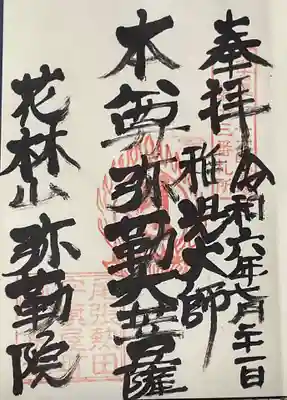 奉拝
令和六年六月二十一日
稚児大師
本尊弥勒大菩薩
花林山
弥勒院
尾張熱田